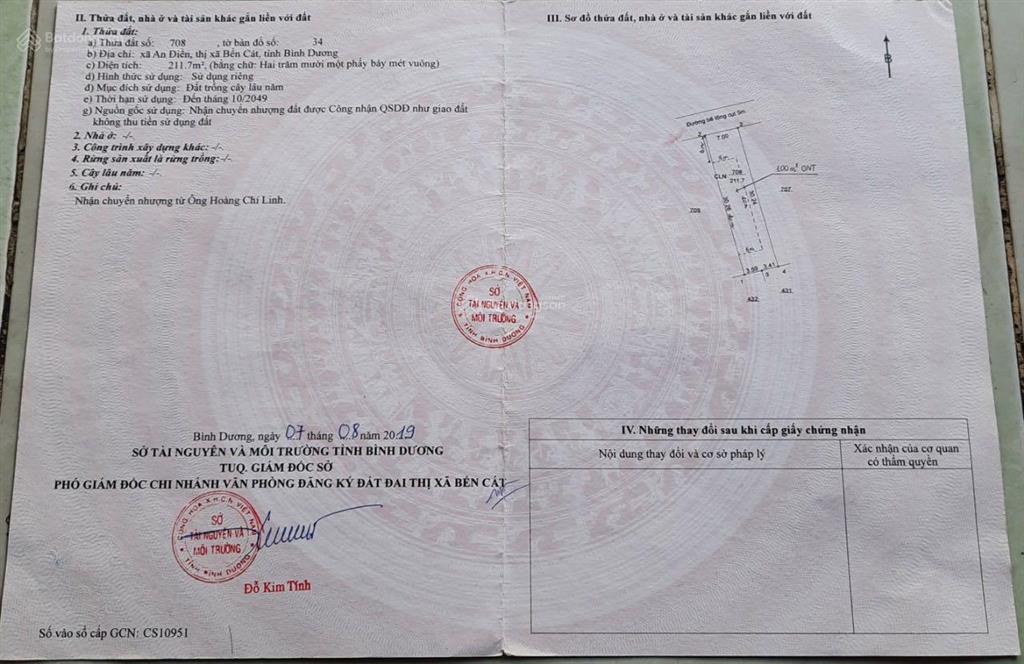 II. Thửa đất, nhà ở và tài sản khác gắn liền với đất
1. Thửa đất:
a) Thửa đất số: 708 , tờ bản đồ số: 34
b) Địa chỉ: xã An Điền, thị xã Bến Cát, tỉnh Bình Dương
c) Diện tích: 211.7m², (bằng chữ: Hai trăm mười một phẩy bảy mét vuông)
d) Hình thức sử dụng: Sử dụng riêng
đ) Mục đích sử dụng: Đất trồng cây lâu năm
e) Thời hạn sử dụng: Đến tháng 10/2049
g) Nguồn gốc sử dụng: Nhận chuyển nhượng đất được Công nhận QSDĐ như giao đất
không thu tiền sử dụng đất
2. Nhà ở: -/-
3. Công trình xây dựng khác: -/-
4. Rừng sản xuất là rừng trồng:-/-
5. Cây lâu năm: -/-
6. Ghi chú:
Nhận chuyển nhượng từ Ông Hoàng Chí Linh.
Bình Dương, ngày 07 tháng 08 năm 2019
SỞ TÀI NGUYÊN VÀ MÔI TRƯỜNG TỈNH BÌNH DƯƠNG
TUQ. GIÁM ĐỐC SỞ
PHÓ GIÁM ĐỐC CHI NHÁNH VĂN PHÒNG ĐĂNG KÝ ĐẤT ĐAI THỊ XÃ BẾN CÁT
CỘNG HÒA X.H.C.N VIỆT NAM
SỞ
TÀI NGUYÊN VÀ
MÔI TRƯỜNG
TỈNH BÌNH DƯƠNG
Đỗ Kim Tính
Số vào sổ cấp GCN: CS10951
CỘNG HÒA X.H.C.N VIỆT NAM
SỞ
TÀI NGUYÊN VÀ
MÔI TRƯỜNG
TỈNH BÌNH DƯƠNG
III. Sơ đồ thửa đất, nhà ở và tài sản khác gắn liền với đất
B
Đường bê tông đứt 5m
2 7.00 3
6m
CLN 708
211.7
100 m² ONT
30.28
30.24
709
707
6m
3.59 3.41
1 3 4
432
431
IV. Những thay đổi sau khi cấp giấy chứng nhận
Nội dung thay đổi và cơ sở pháp lý
Xác nhận của cơ quan
có thẩm quyền